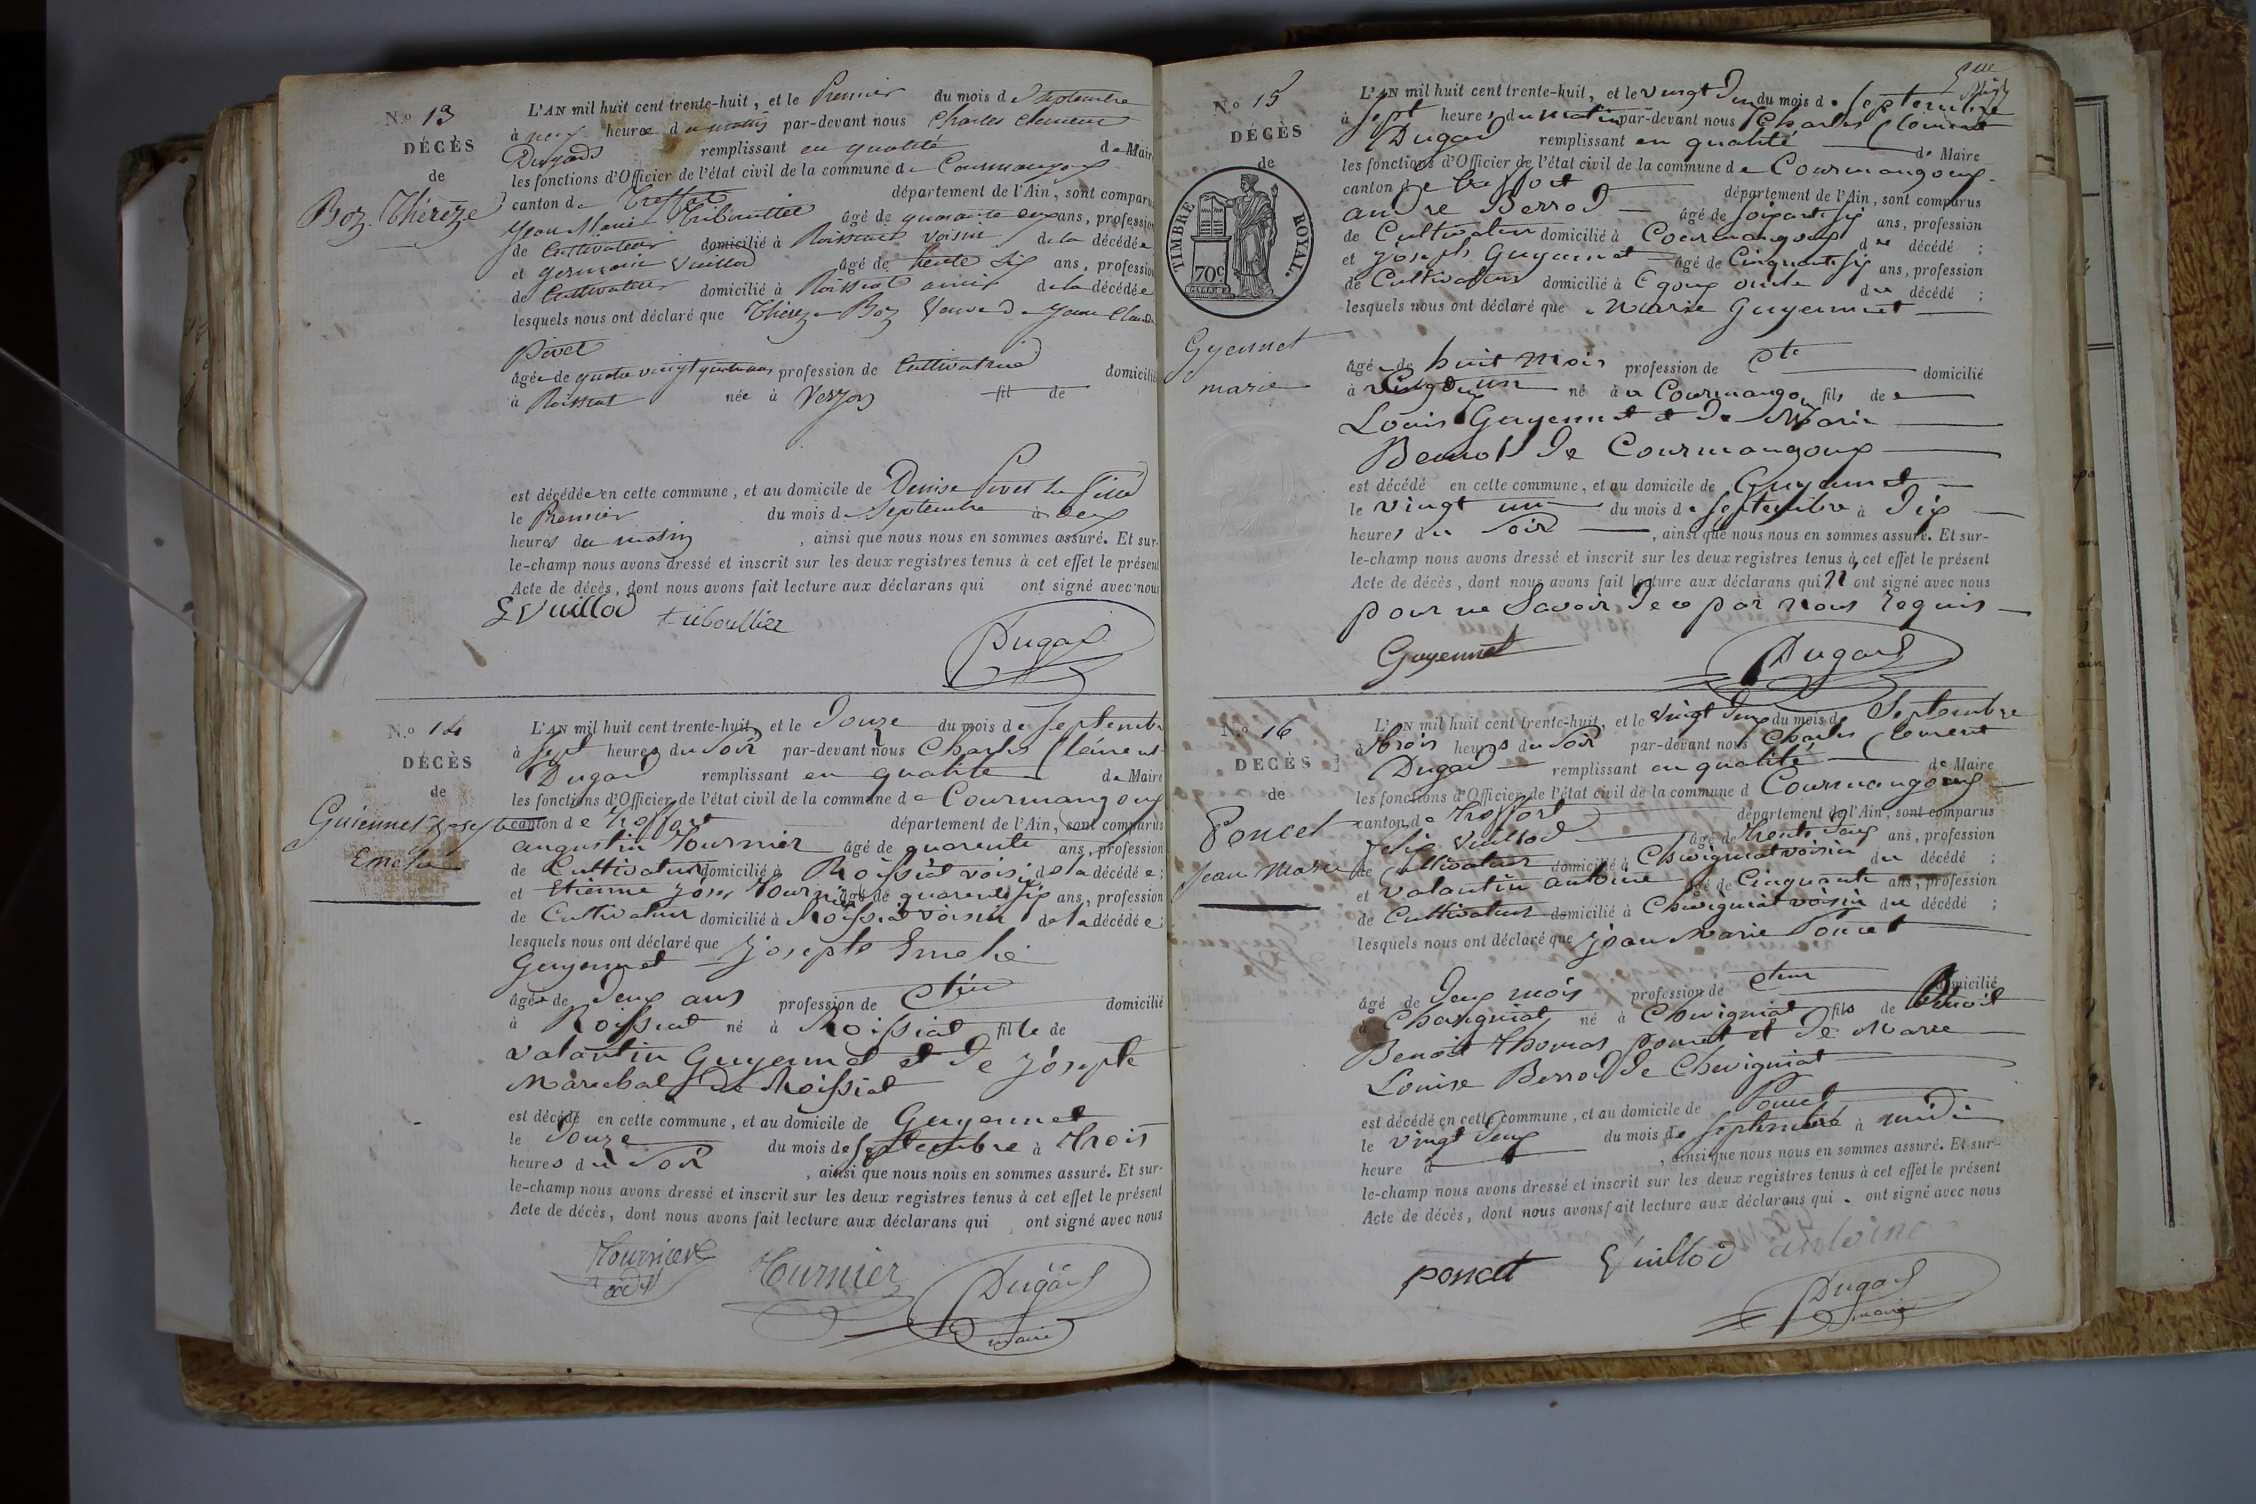 N.o 13
DÉCÈS
de
Boz Thérèze
L'AN mil huit cent trente-huit, et le Premier du mois de Septembre
à neuf heures du matin par-devant nous Charles Clément
Dugard remplissant en qualité de Maire
les fonctions d'Officier de l'état civil de la commune de Courmangoux
canton de Treffort département de l'Ain, sont comparus
Jean Marie Tribouillet âgé de quarante deux ans, profession
de Cultivateur domicilié à Roissiat voisin de la décédée
et germain Vuillod âgé de trente six ans, profession
de Cultivateur domicilié à Roissiat amis de la décédée
lesquels nous ont déclaré que Thérèze Boz Veuve de Jean Claude
Pivet
âgée de quatre vingt quatre ans profession de Cultivatrice domicilié
à Roissiat née à Verjon fil de
est décédée en cette commune, et au domicile de Denise Pivet sa fille
le Premier du mois de Septembre à deux
heures du matin, ainsi que nous nous en sommes assuré. Et sur-
le-champ nous avons dressé et inscrit sur les deux registres tenus à cet effet le présent
Acte de décès, dont nous avons fait lecture aux déclarans qui ont signé avec nous
G Vuillod triboullier
Dugard
N.o 14
DÉCÈS
de
Guiennet Joseph
Emelie
L'AN mil huit cent trente-huit, et le Douze du mois de Septembre
à Sept heures du Soir par-devant nous Charles Clément
Dugard remplissant en qualité de Maire
les fonctions d'Officier de l'état civil de la commune de Courmangoux
canton de Treffort département de l'Ain, sont comparus
augustin Tournier âgé de quarente ans, profession
de Cultivateur domicilié à Roissiat voisin de la décédée;
et Etienne Josep Tournier âgé de quarente six ans, profession
de Cultivateur domicilié à Roissiat voisin de la décédée;
lesquels nous ont déclaré que Josepte Emelie
Guyennet
âgée de Deux ans profession de Ctrice domicilié
à Roissiat né à Roissiat fille de
valantin Guyennet et de Josepte
Marechal de Roissiat
est décédé en cette commune, et au domicile de Guyennet
le Douze du mois de Septembre à Trois
heures du Soir, ainsi que nous nous en sommes assuré. Et sur-
le-champ nous avons dressé et inscrit sur les deux registres tenus à cet effet le présent
Acte de décès, dont nous avons fait lecture aux déclarans qui ont signé avec nous
Tournier
adj
Tournier
Dugard
maire
N.o 15
DÉCÈS
de
TIMBRE ROYAL.
70c
Gyennet
marie
L'AN mil huit cent trente-huit, et le vingt Deux du mois de Septembre
à Sept heures du matin par-devant nous Charles Clément
Dugard remplissant en qualité de Maire
les fonctions d'Officier de l'état civil de la commune de Courmangoux
canton de Treffort département de l'Ain, sont comparus
andre Berrod âgé de Soixante Six ans, profession
de Cultivateur domicilié à Courmangoux du décédé;
et Joseph Guyennet âgé de Cinquante Six ans, profession
de Cultivateur domicilié à Egoux oncle du décédé;
lesquels nous ont déclaré que Marie Guyennet
âgée de huit mois profession de Cte domicilié
à né à Courmangou fils de
Louis Guyennet et de Marie
Benoit de Courmangoux
est décédé en cette commune, et au domicile de Guyennet
le vingt un du mois de Septembre à Dix
heures du Soir, ainsi que nous nous en sommes assuré. Et sur-
le-champ nous avons dressé et inscrit sur les deux registres tenus à cet effet le présent
Acte de décès, dont nous avons fait lecture aux déclarans qui n'ont signé avec nous
pour ne Savoir de ce par nous requis
Guyennet
Dugard
N.o 16
DÉCÈS
de
Poncet
Jean Marie
L'AN mil huit cent trente-huit, et le vingt Deux du mois de Septembre
à trois heures du Soir par-devant nous Charles Clément
Dugard remplissant en qualité de Maire
les fonctions d'Officier de l'état civil de la commune d Courmangoux
canton de Treffort département de l'Ain, sont comparus
Felix Vuillod âgé de trente Deux ans, profession
de Cultivateur domicilié à Chevigniat voisin du décédé;
et valantin antoine âgé de Cinquante ans, profession
de Cultivateur domicilié à Chevigniat voisin du décédé;
lesquels nous ont déclaré que Jean Marie Poncet
âgé de Deux mois profession de Cteur domicilié
à Chevigniat né à Chevigniat fils de Benoit
Benoit Thomas poncet et de Marie
Louise Berrod de Chevigniat
est décédé en cette commune, et au domicile de Poncet
le vingt Deux du mois de Septembre à midi
heure d, ainsi que nous nous en sommes assuré. Et sur-
le-champ nous avons dressé et inscrit sur les deux registres tenus à cet effet le présent
Acte de décès, dont nous avons fait lecture aux déclarans qui ont signé avec nous
poncet Vuillod antoine
Dugard
maire